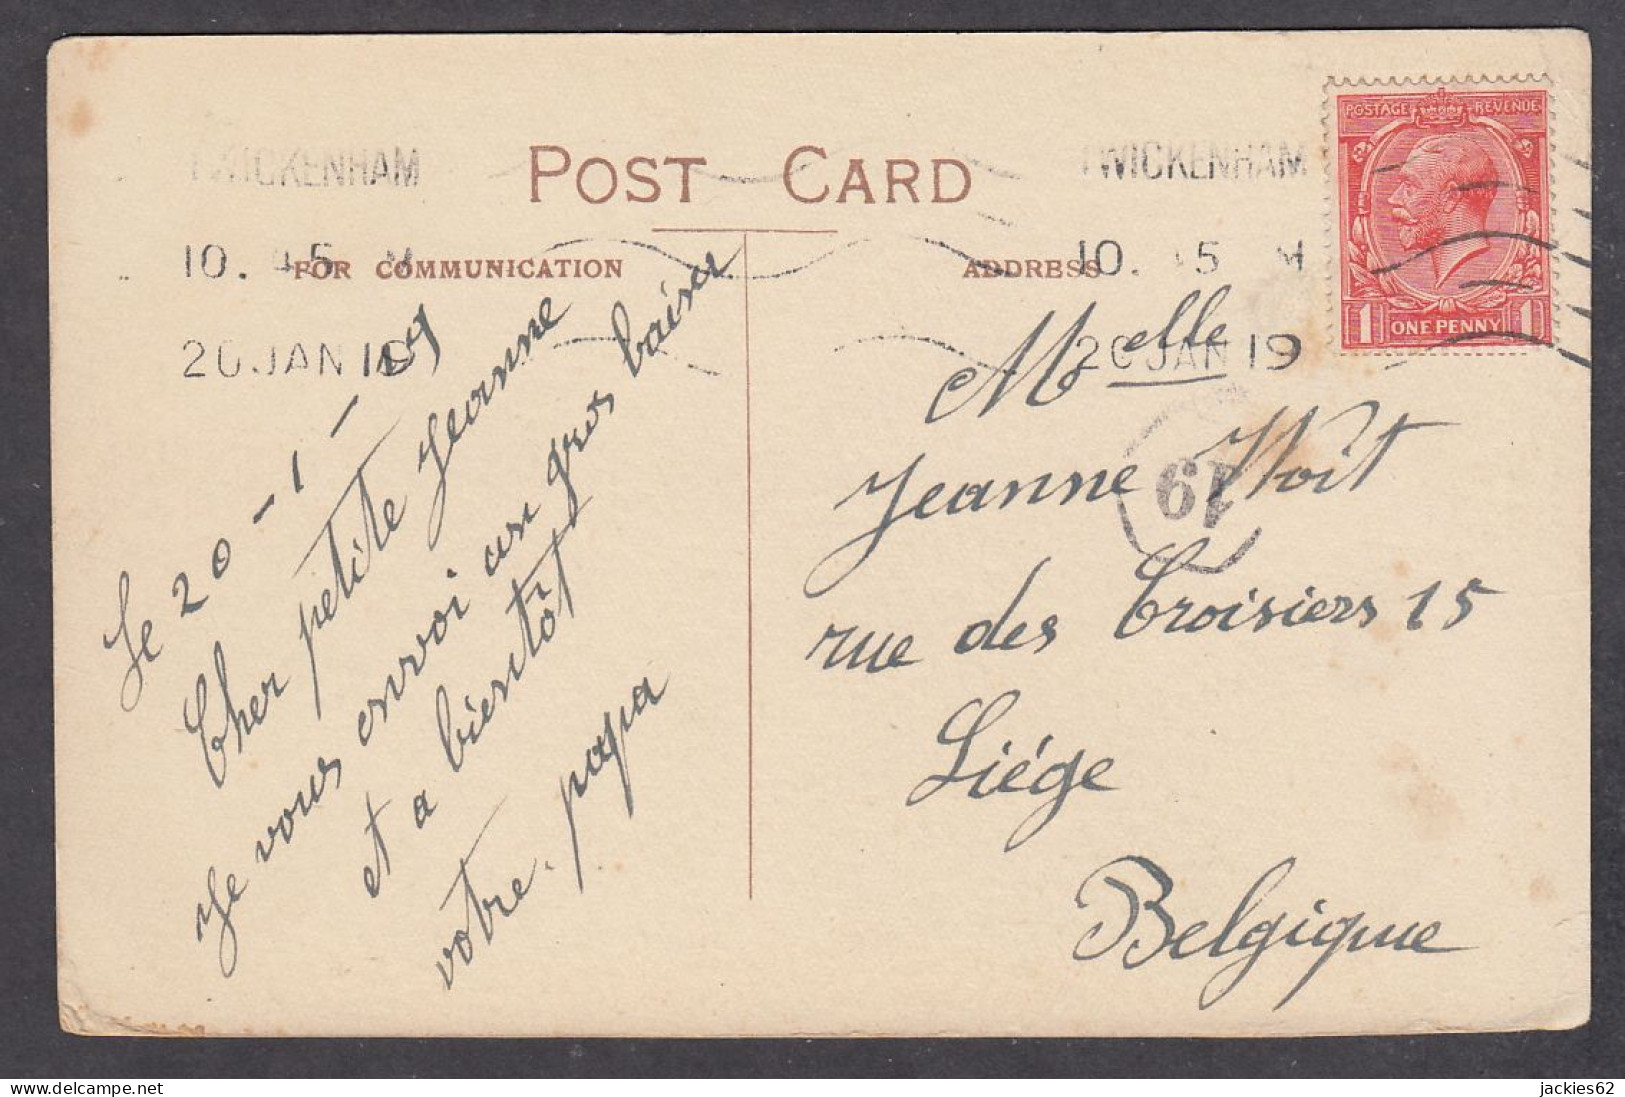 POST CARD
TWICKENHAM
TWICKENHAM
10. 45 M
10. 15 M
20 JAN 19
20 JAN 19
FOR COMMUNICATION
ADDRESS
POSTAGE REVENUE
1 ONE PENNY 1
le 20 - 1 - 19
Cher petite Jeanne
Je vous envoi un gros baiser
et a bientôt
votre papa
Melle
Jeanne Woit
19
rue des Croisiers 15
Liége
Belgique
jackies62